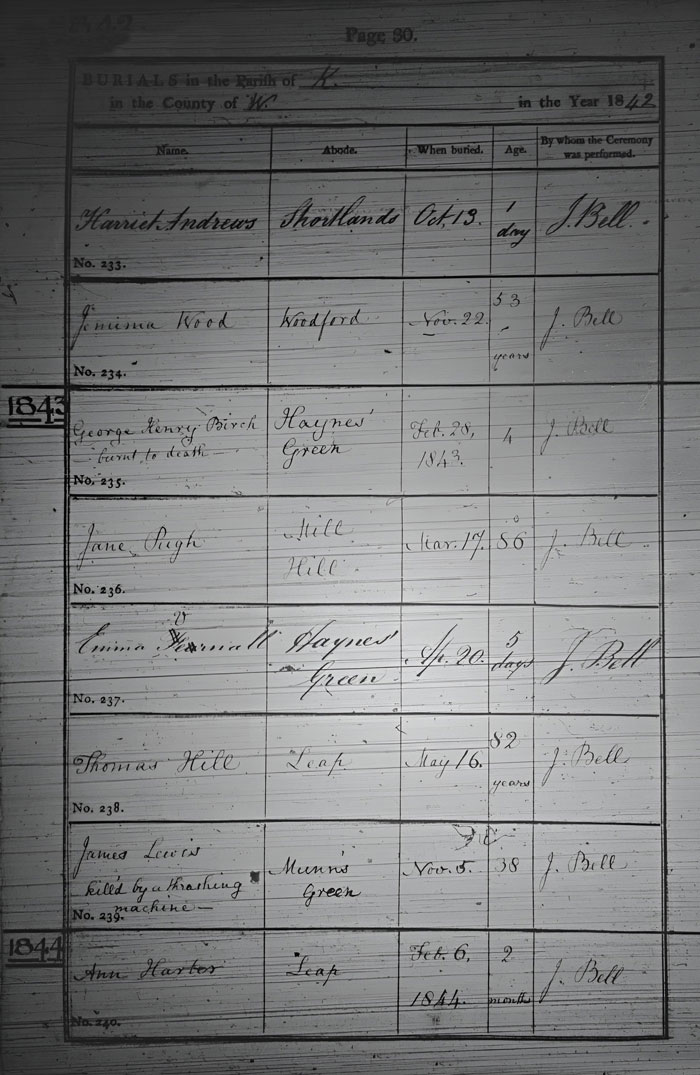 Page 80.
BURIALS in the Parish of K.
in the County of W. in the Year 1842
Name. Abode. When buried. Age. By whom the Ceremony was performed.
Harriet Andrews Shortlands Oct. 13. 1 day J. Bell.
No. 233.
Jemima Wood Woodford Nov. 22. 53 years J. Bell
No. 234.
1843
George Henry Birch Haynes' Green Feb. 28, 1843. 4 J. Bell
burnt to death
No. 235.
Jane Pugh Mill Hill Mar. 17. 86 J. Bell
No. 236.
Emma Haynes' Green Ap. 20. 5 days J. Bell
No. 237.
Thomas Hill Leap May 16. 82 years J. Bell
No. 238.
James Lewis Munn's Green Nov. 5. 38 J. Bell
kill'd by a thrashing
machine
No. 239.
1844
Ann Harber Leap Feb. 6, 1844. 2 months J. Bell
No. 240.